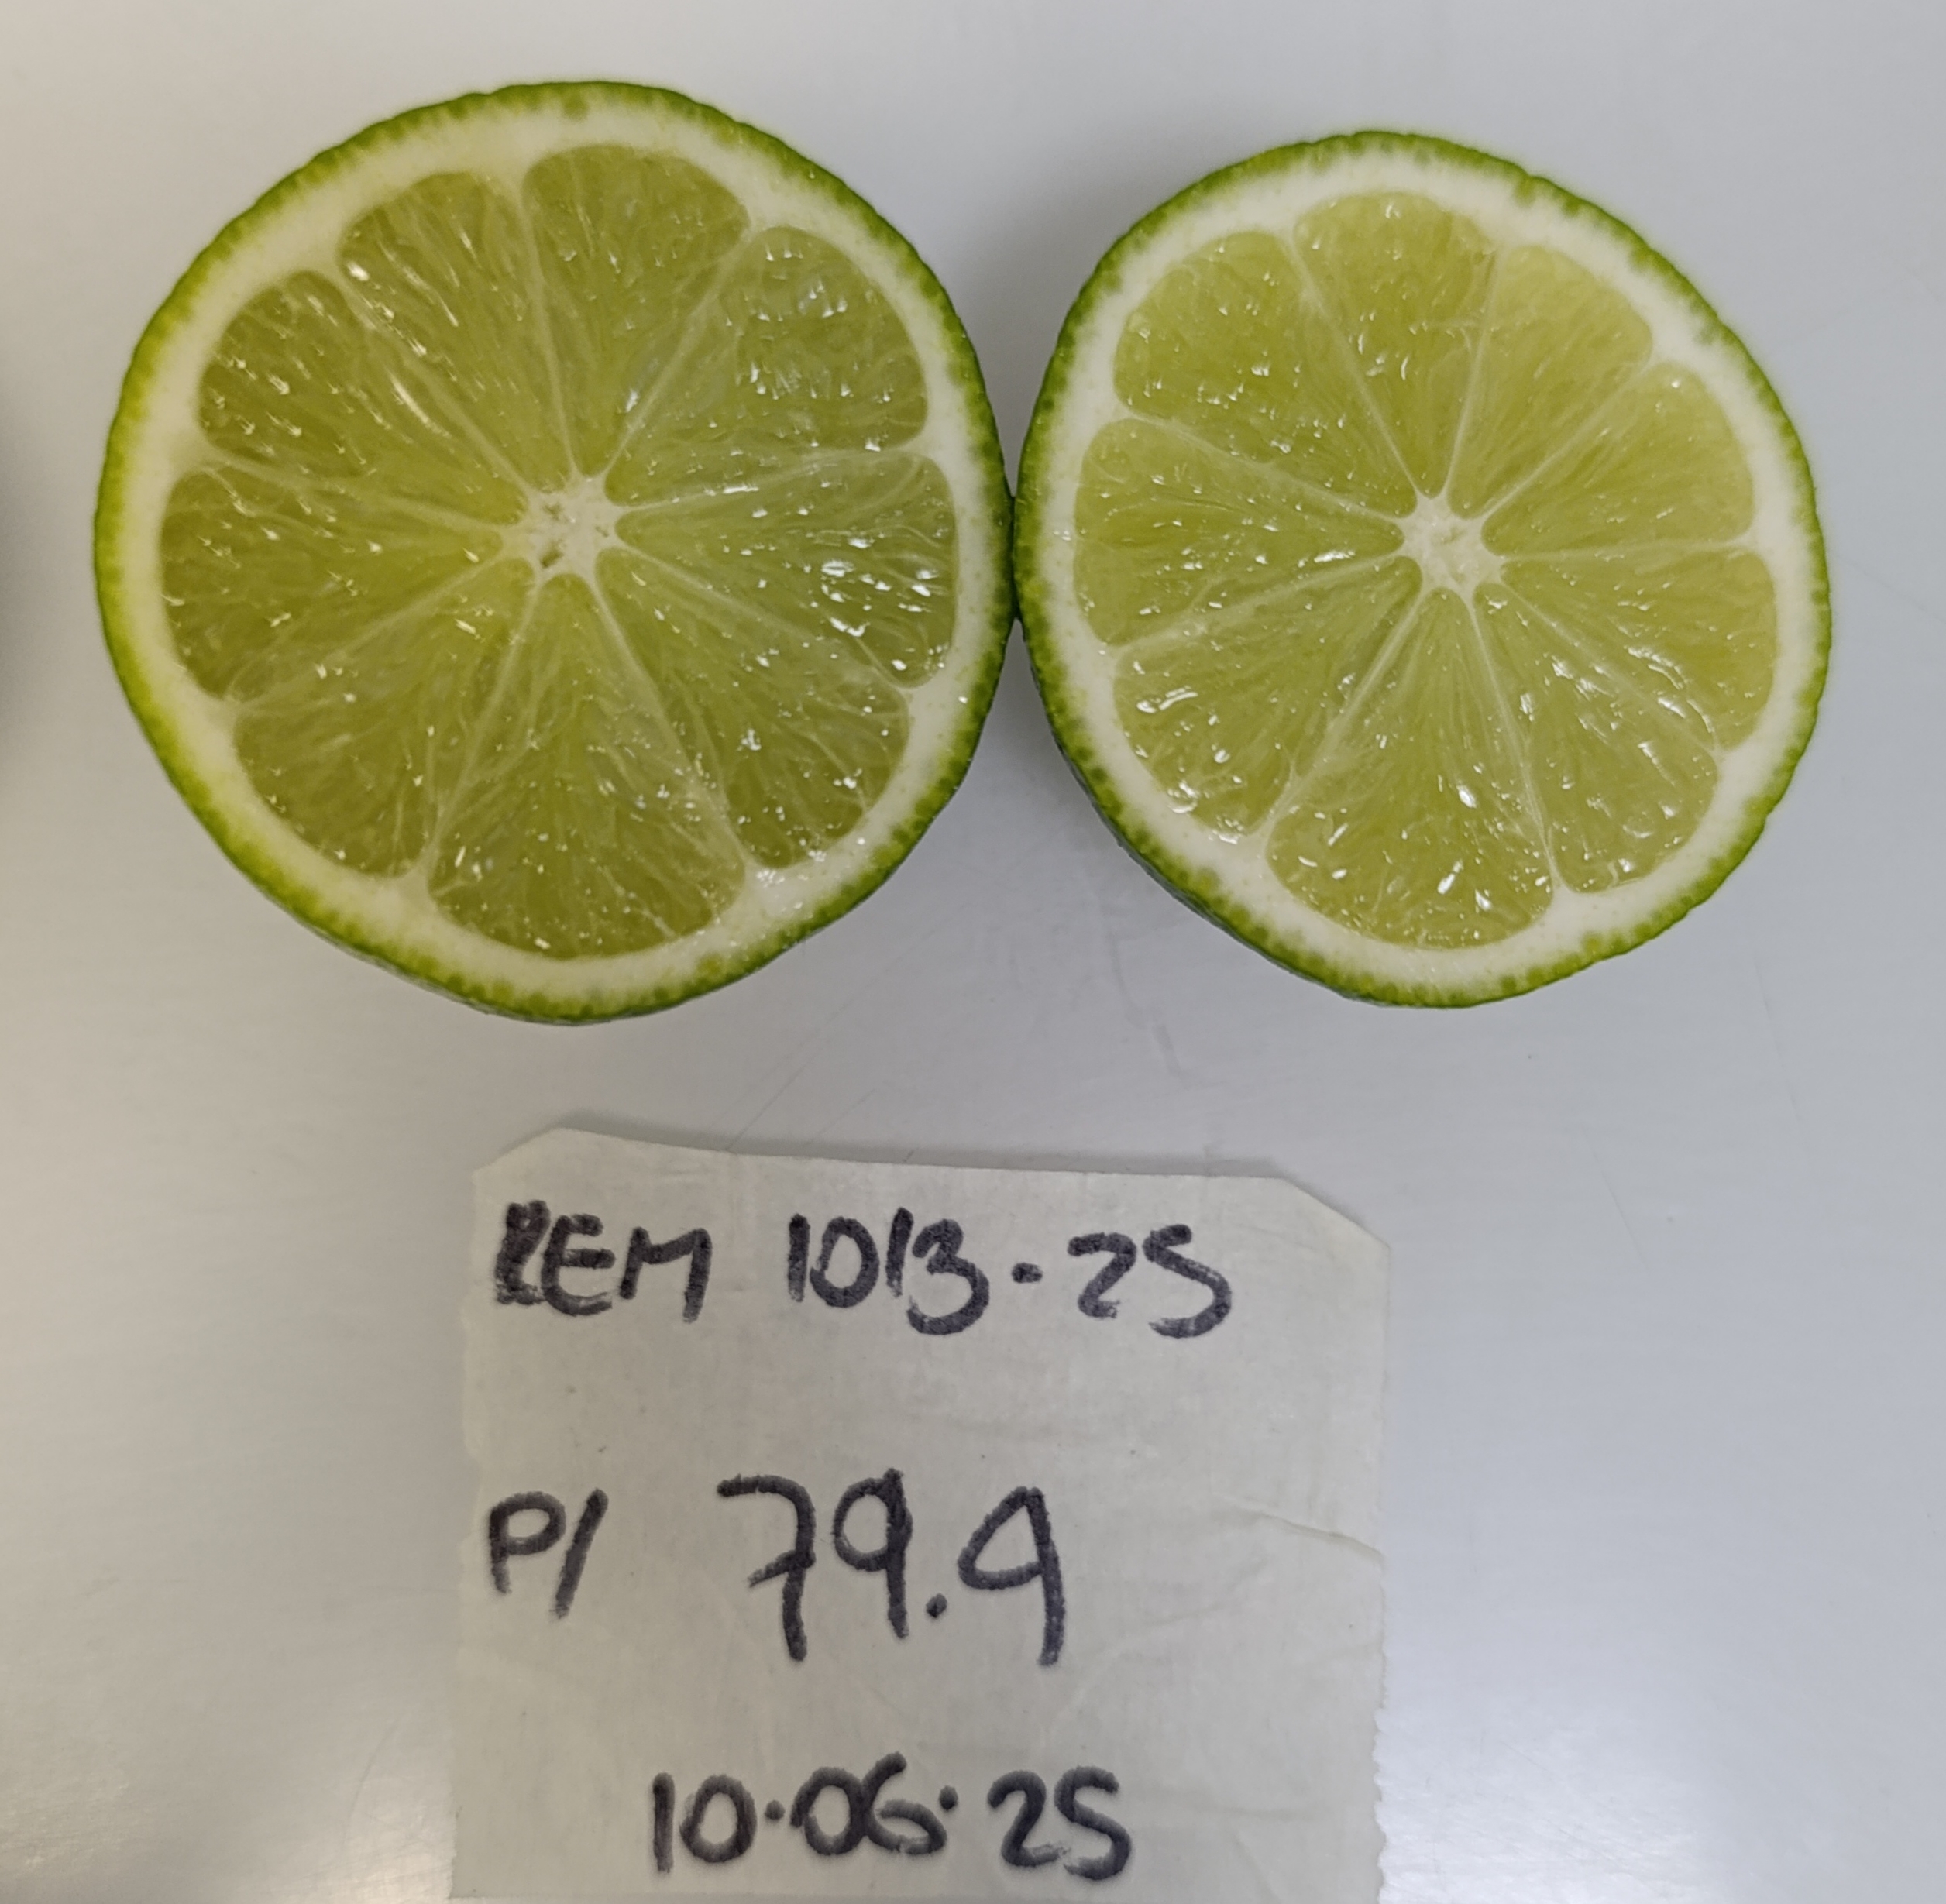 REM 1013-25
P/ 79.9
10.06.25